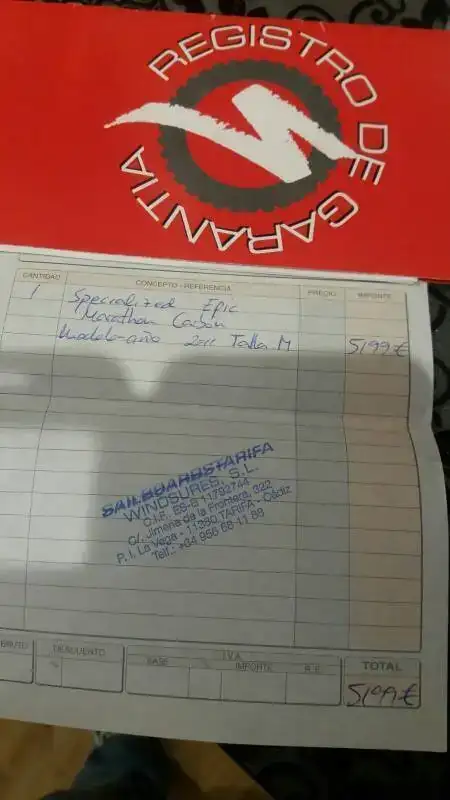 REGISTRO DE GARANTIA
CANTIDAD CONCEPTO - REFERENCIA PRECIO IMPORTE
1 Specialized Epic
Marathon Carbon
Modelo-año 2011 Talla M 5199€
SAILBOARDSTARIFA
WINDSURES, S.L.
C.I.F. ES-B 11792744
C/. Jimena de la Frontera, 322
P. I. La Vega - 11380 TARIFA - Cádiz
Telf.: +34 956 68 11 88
BRUTO DESCUENTO I.V.A. TOTAL
% BASE % IMPORTE R.E.
5199€